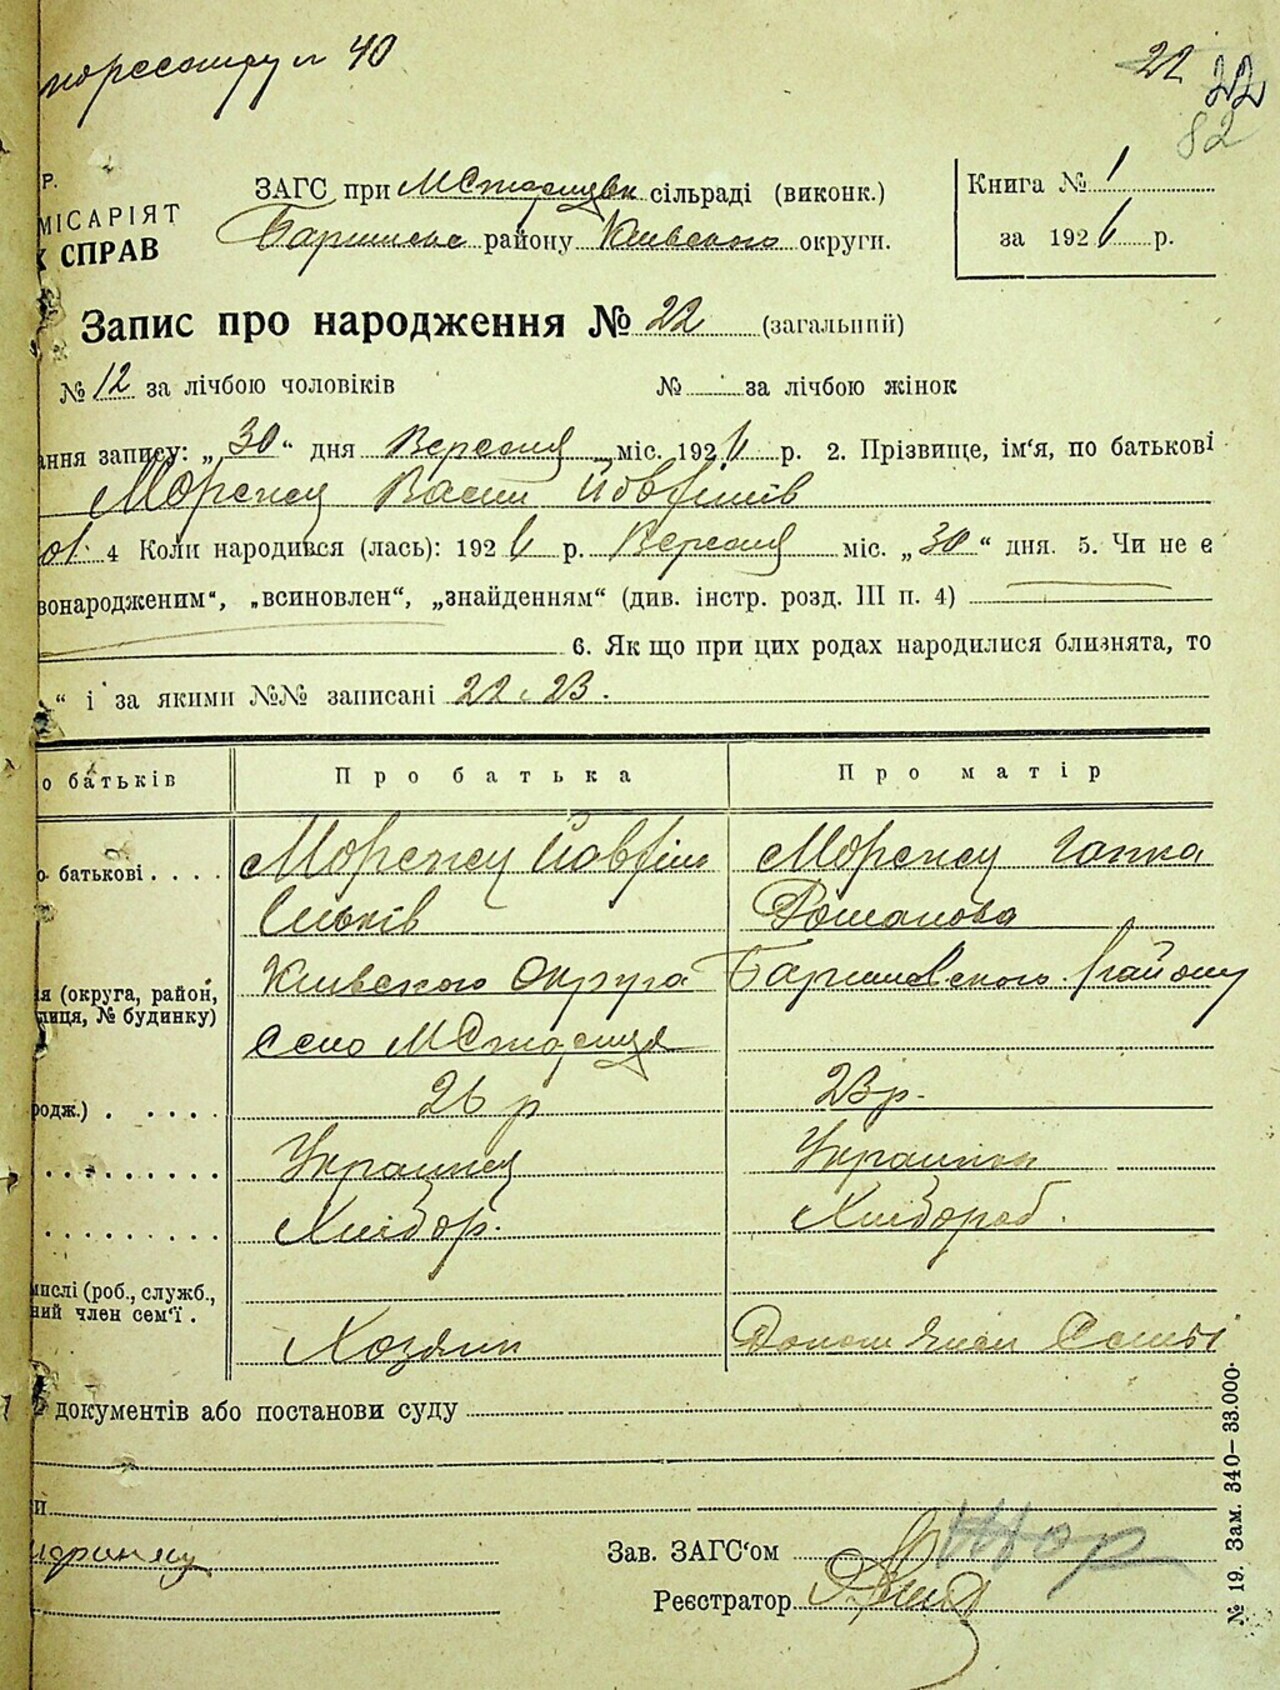 № 40
22 22
82
Р.
МІСАРІЯТ
СПРАВ
ЗАГС при МСтарицьк сільраді (виконк.)
Баришевс району Київского округи.
Книга № 1
за 1926 р.
Запис про народження № 22 (загальний)
№ 12 за лічбою чоловіків № за лічбою жінок
ання запису: „30“ дня Вересня міс. 1926 р. 2. Прізвище, ім‘я, по батькові
Васил Йовфімів
4 Коли народився (лась): 1926 р. Вересня міс. „30“ дня. 5. Чи не є
вонародженим“, „всиновлен“, „знайденням“ (див. інстр. розд. III п. 4)
6. Як що при цих родах народилися близнята, то
“ і за якими №№ записані 22 і 23.
о батьків Про батька Про матір
о батькові Йовфім Ганна
Романова
я (округа, район, Київского Округа Баришевского району
лиця, № будинку)
Село МСтариця
родж.) 26 р 23 р.
Українец Українка
Хлібор. Хлібороб.
мислі (роб., служб.,
ний член сем‘ї. Хозяин Сем‘ї
документів або постанови суду
и
Зав. ЗАГС‘ом
Реєстратор
№ 19. Зам. 340–33.000.